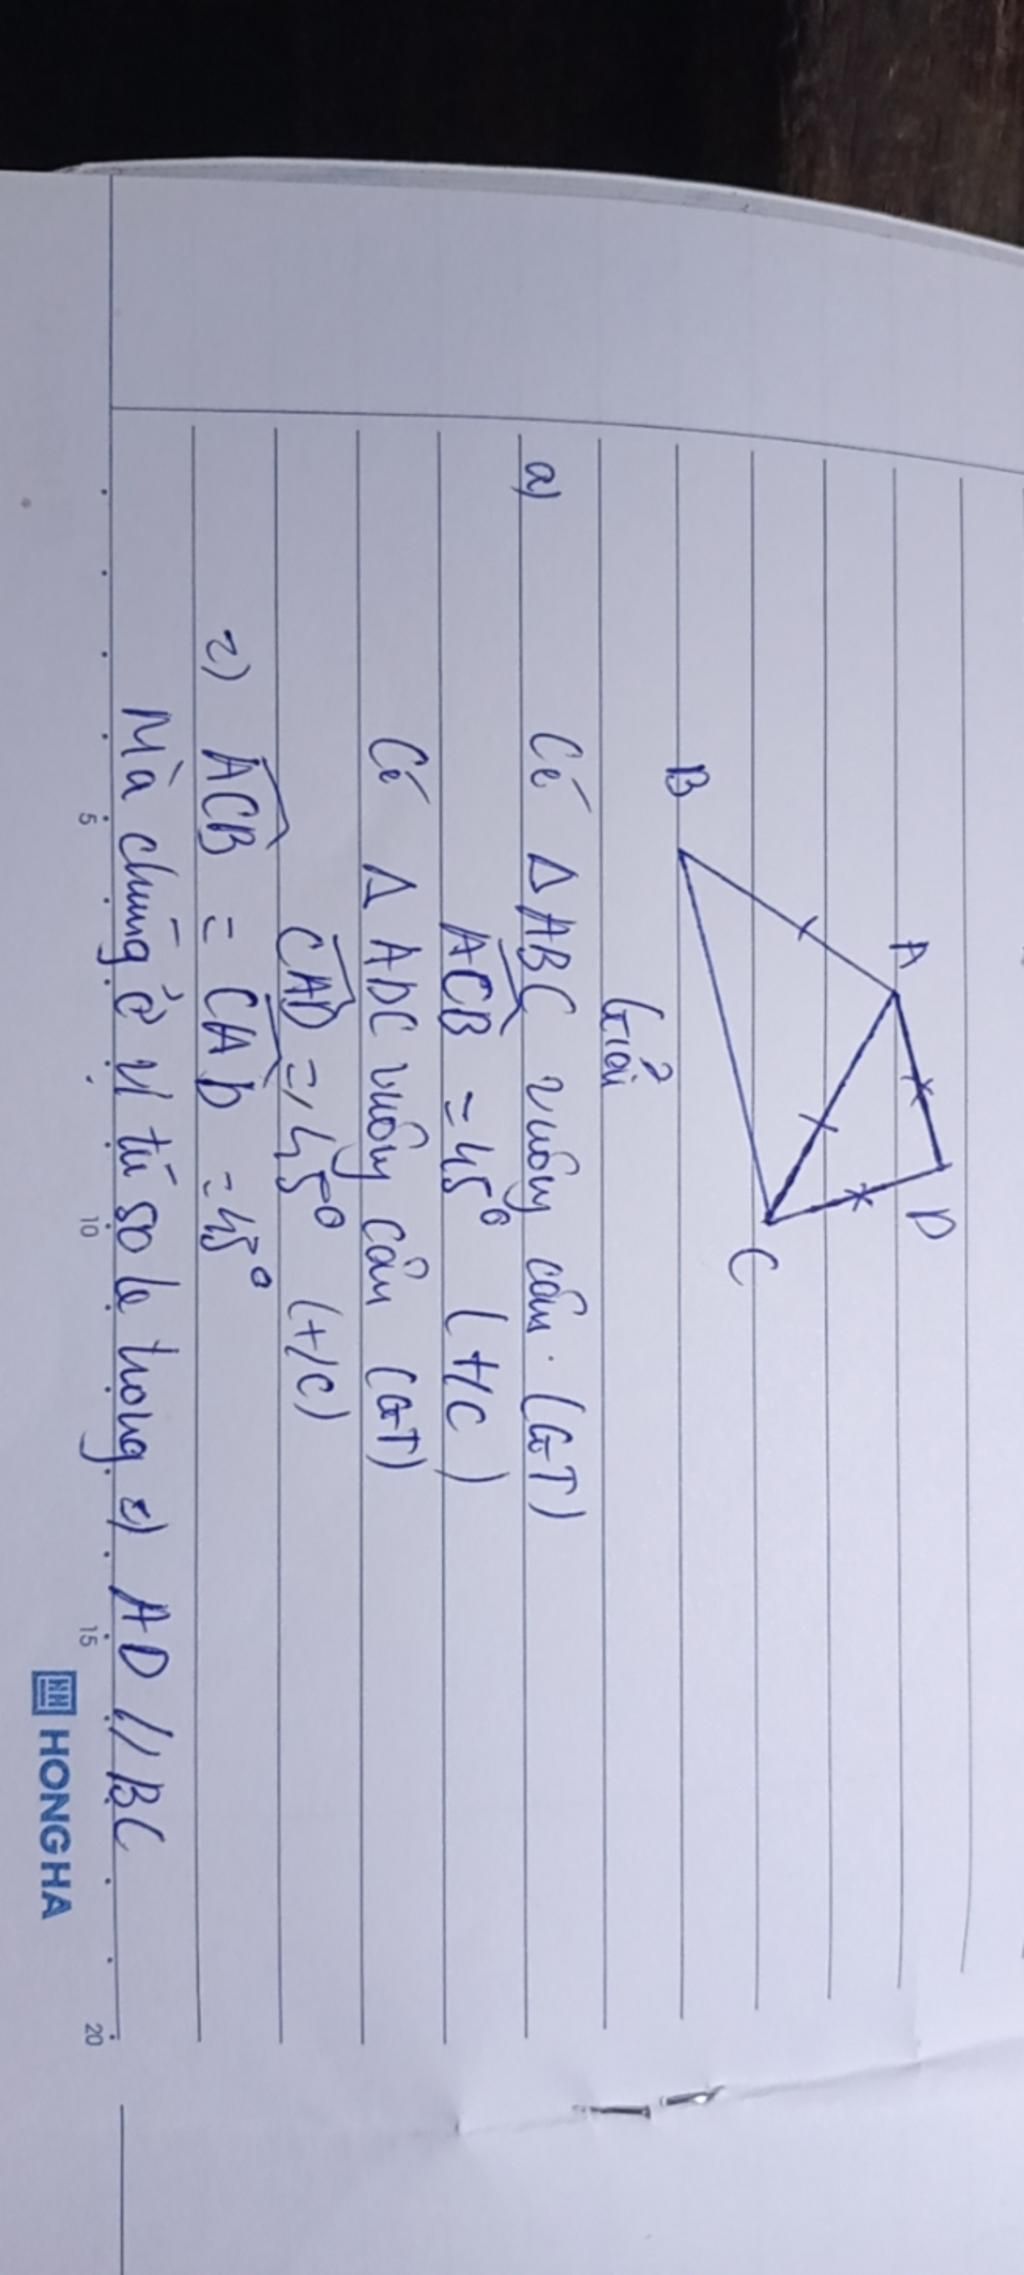 A
D
B
C
Giải
a) Có Δ ABC vuông cân. (GT)
ACB = 45° (t/c)
Có Δ ADC vuông cân (GT)
CAD = 45° (t/c)
=) ACB = CAD = 45°
Mà chúng ở vị trí so le trong =) AD // BC
5 10 15 20
HONG HA